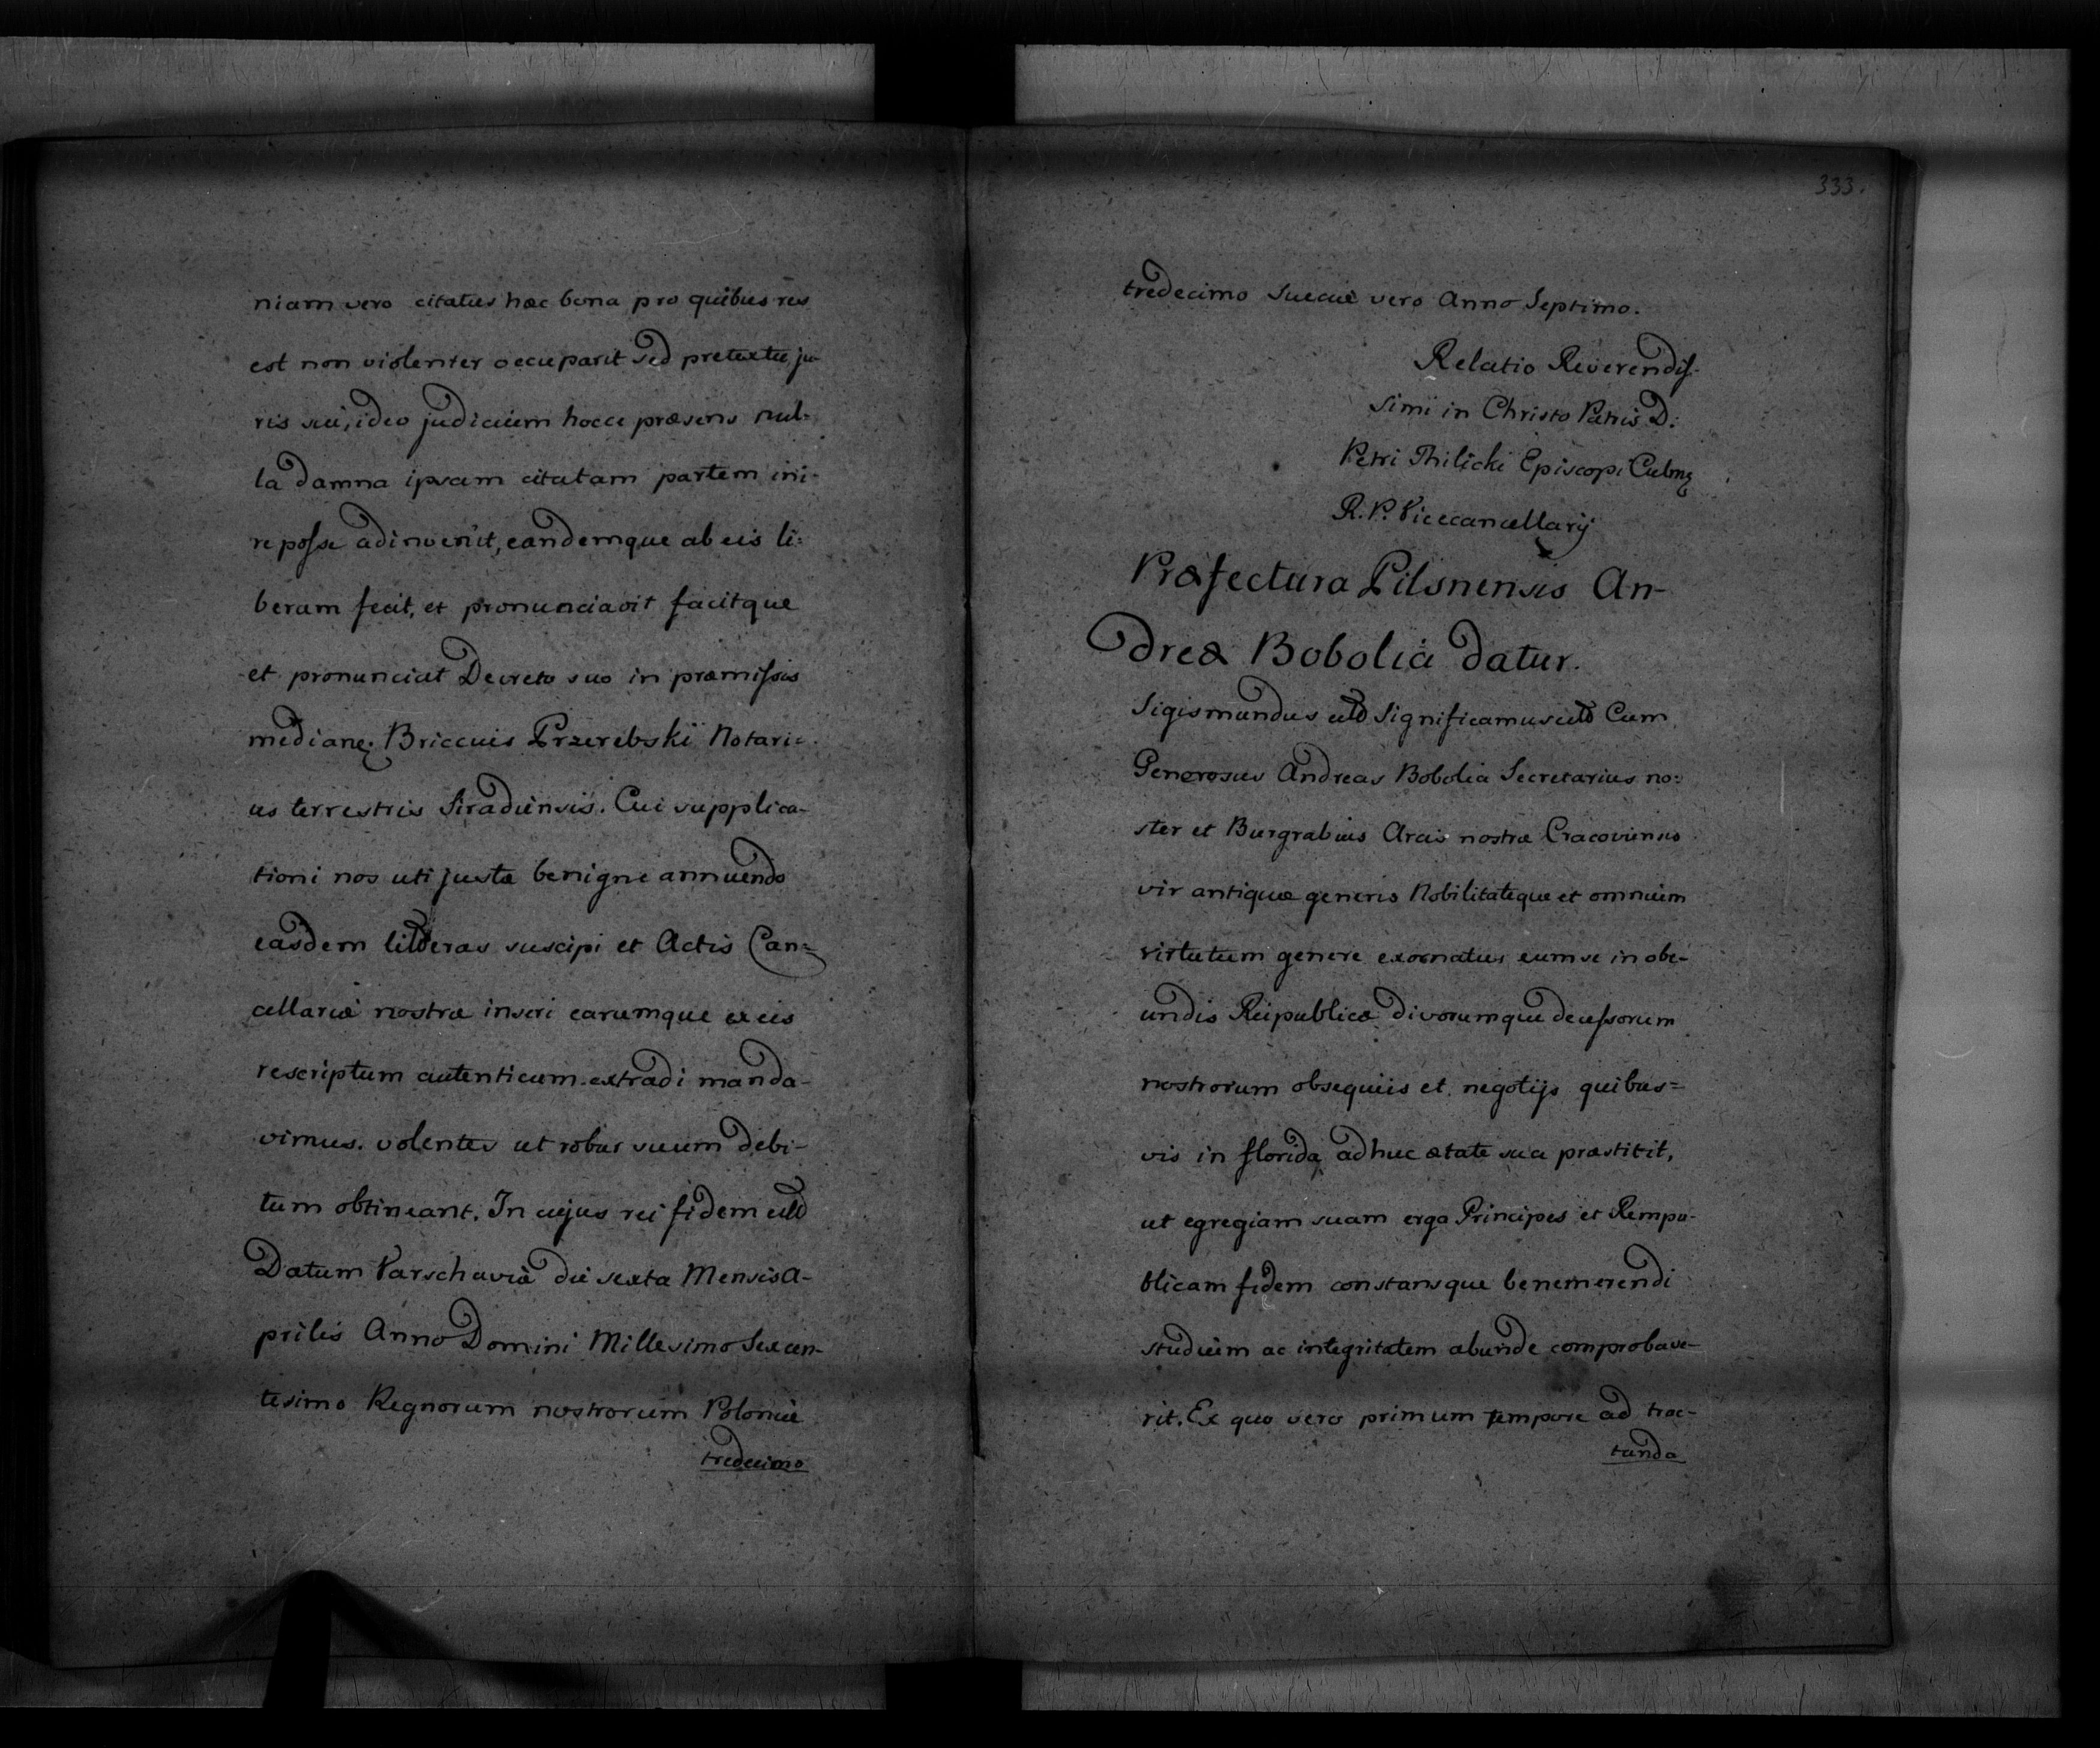 niam vero citatus hæc bona pro quibus res
est non violenter occuparit sed pretextu ju-
ris sui, ideo judicium hocce præsens nul-
la damna ipsam citatam partem ini-
re posse adinvenit, eandemque ab eis li-
beram fecit, et pronunciavit facitque
et pronunciat Decreto suo in præmissis
mediane. Briccius Przerebski Notari-
us terrestris Siradiensis. Cui supplica-
tioni nos uti justæ benigne annuendo
easdem litteras suscipi et Actis Can-
cellariæ nostræ inseri earumque ex eis
rescriptum autenticum extradi manda-
vimus. volentes ut robur suum debi-
tum obtineant. In cujus rei fidem
Datum Varschaviæ die sexta Mensis A-
prilis Anno Domini Millesimo Sexcen-
tesimo Regnorum nostrorum Poloniæ
tredecimo
333.
tredecimo Sueciæ vero Anno Septimo.
Relatio Reverendis-
simi in Christo Patris D:
Petri Thilicki Episcopi Culmen
R. P. Vicecancellarij
Præfectura Pilsnensis An-
dreæ Bobolia datur.
Sigismundus Significamus Cum
Generosus Andreas Bobolia Secretarius no-
ster et Burgrabius Arcis nostræ Cracoviensis
vir antiquæ generis Nobilitateque et omnium
virtutum genere exornatus eum se in obe-
undis Reipublicæ Divorumque decessorum
nostrorum obsequiis et negotijs quibus-
vis in florida adhuc ætate sua præstitit,
ut egregiam suam erga Principes et Rempu-
blicam fidem constansque benemerendi
studium ac integritatem abunde comprobave-
rit. Ex quo vero primum tempore ad trac-
tanda